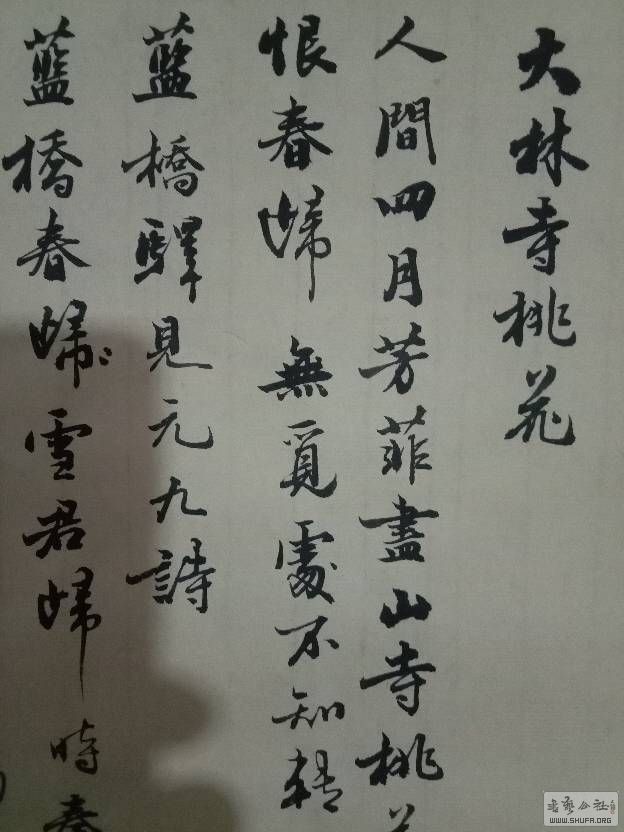 大林寺桃花
人間四月芳菲盡山寺桃
恨春歸無覓處不知轉
藍橋驛見元九詩
藍橋春歸雪君歸時秦
書藝公社
WWW.SHUFA.ORG